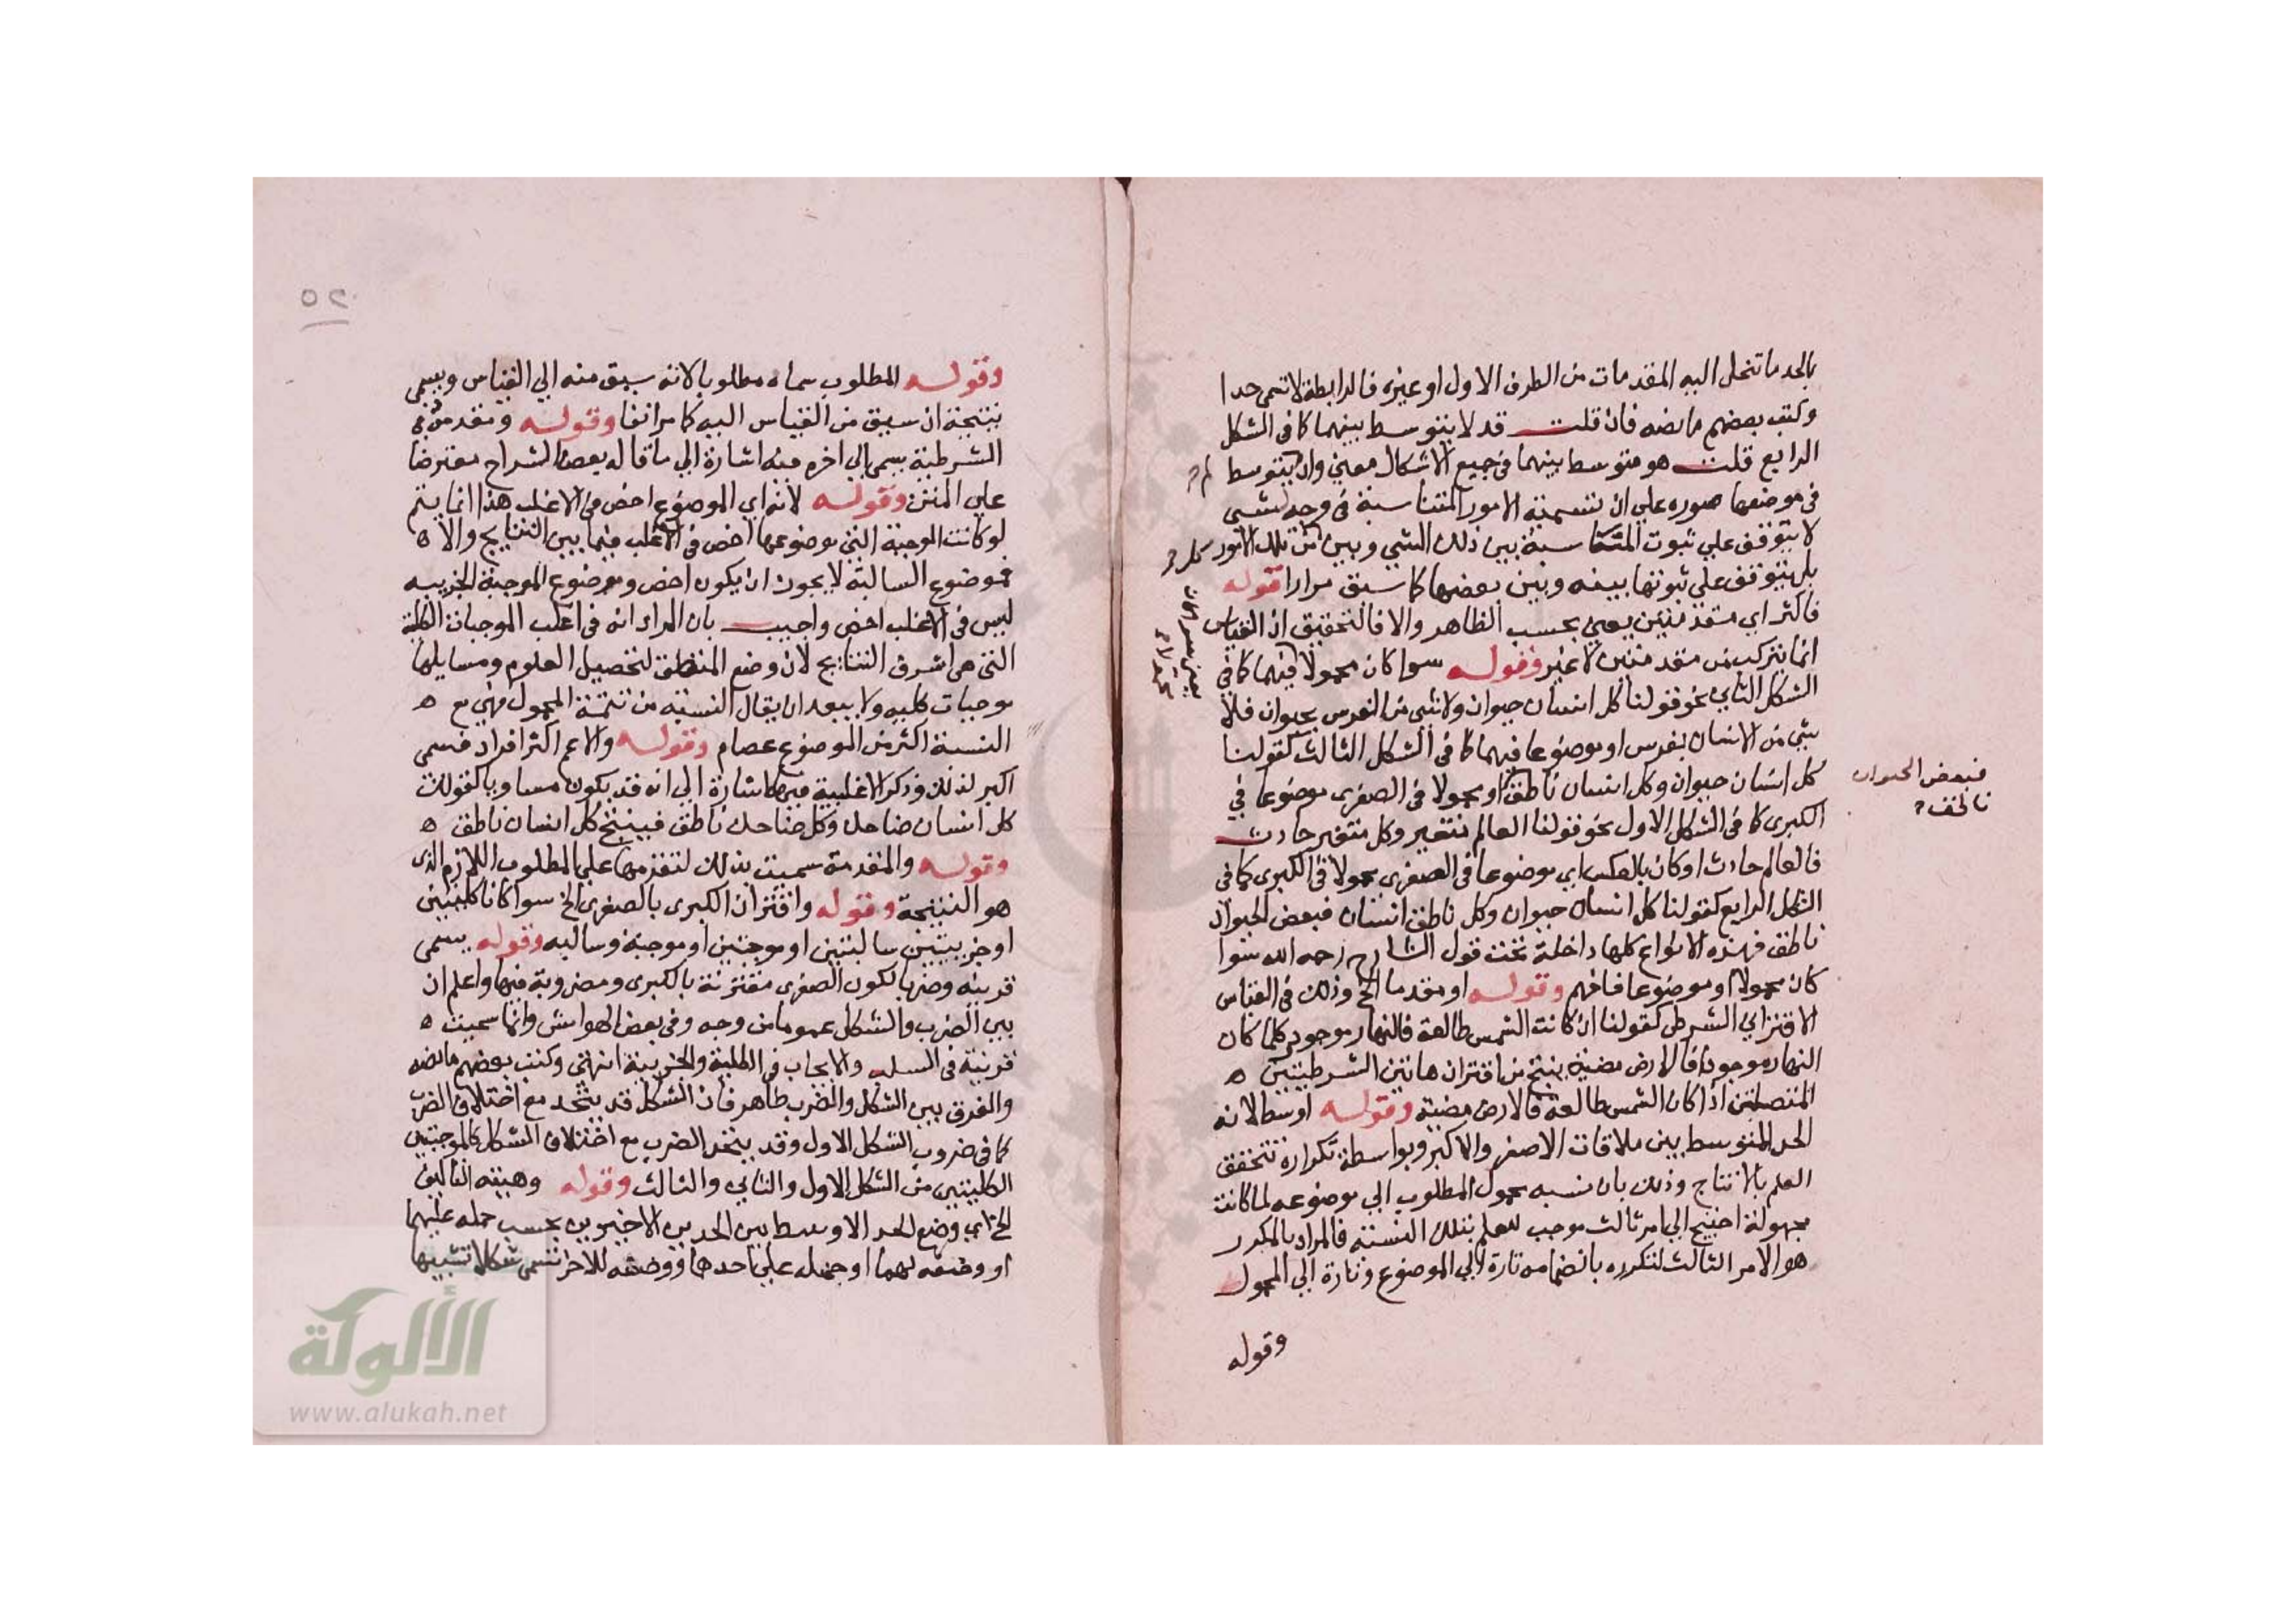 بالحد ما تنحل اليه المقدمات من الطرف الاول او غيره فالرابطة لا تسمى حدا
وكتب بعضهم ما نصه فان قلت قد لا يتوسط بينهما كما في الشكل
الرابع قلت هو متوسط بينهما في جميع الاشكال معني وان لم يتوسط
في موضعها صوره علي ان تسمية الامور المتناسبة في وجه لشي
لا يتوقف علي ثبوت المناسبة بين ذلك الشي وبين كل تلك الامور
بل يتوقف علي ثبوتها بينه وبين بعضها كما سبق مرارا قوله
فاكثر اي مقدمتين يعني بحسب الظاهر والا فالتحقيق ان القياس
انما يتركب من مقدمتين لا غير وقوله سوا كان محمولا فيهما كما في
الشكل الثاني نحو قولنا كل انسان حيوان ولا شي من الفرس بحيوان فلا
شي من الانسان بفرس او موضوعا فيهما كما في الشكل الثالث كقولنا
كل انسان حيوان وكل انسان ناطق او محمولا في الصغرى موضوعا في
فبعض الحيوان
ناطق
الكبرى كما في الشكل الاول نحو قولنا العالم متغير وكل متغير حادث
فالعالم حادث او كان بالعكس اي موضوعا في الصغرى محمولا في الكبرى كما في
الشكل الرابع كقولنا كل انسان حيوان وكل ناطق انسان فبعض الحيوان
ناطق فهذه الانواع كلها داخلة تحت قول الشارح رحمه الله سوا
كان محمولا او موضوعا فافهم وقوله او مقدما الخ وذلك في القياس
الاقتراني الشرطي كقولنا ان كانت الشمس طالعة فالنهار موجود وكلما كان
النهار موجودا فالارض مضية ينتج من اقتران هاتين الشرطيتين ه
المتصلتين اذا كان الشمس طالعة فالارض مضية وقوله اوسط لانه
الحد المتوسط بين ملاقات الاصغر والاكبر وبواسطة تكراره تتحقق
العلم بالانتاج وذلك بان نسبه محمول المطلوب الي موضوعه لما كانت
مجهولة احتيج الي امر ثالث موجب للعلم بتلك النسبة فالمراد بالمكرر
هو الامر الثالث لتكرره بانضمامه تارة الي الموضوع وتارة الي المحمول
وقوله
٥٢
وقوله المطلوب سماه مطلوبا لانه سيق منه الي القياس ويسمى
نتيجة ان سيق من القياس اليه كما مر انفا وقوله ومقدمة في
الشرطية يسمى الي اخره فيه اشارة الي ما قاله بعض الشراح معترضا
علي المتن وقوله لانه اي الموضوع اخص في الاغلب هذا انما يتم
لو كانت الموجبة التي موضوعها اخص في الاغلب فيما بين النتايج والا ه
فموضوع السالبة لا يجوز ان يكون اخص وموضوع الموجبة الجزييه
ليس في الاغلب اخص واجيب بان المراد انه في اغلب الموجبات الكلية
التي هي اشرف النتايج لان وضع المنطق لتحصيل العلوم ومسايلها
موجبات كليه ولا يبعد ان يقال النسبة من تتمة المحمول فهي مع ه
النسبة اكثر من الموضوع عصام وقوله والاعم اكثر افراد فسمى
اكبر لذلك وذكر الاغلبية فيها اشارة الي انه قد يكون مساويا كقولك
كل انسان ضاحك وكل ضاحك ناطق فينتج كل انسان ناطق ه
وقوله والمقدمة سميت بذلك لتقدمها علي المطلوب اللازم الذي
هو النتيجة وقوله واقتران الكبرى بالصغرى الخ سوا كانا كليتين
او جزييتين سالبتين او موجبتين او موجبة وسالبه وقوله يسمى
قرينه وضربا لكون الصغرى مقترنة بالكبرى ومضروبة فيها واعلم ان
بين الضرب والشكل عموما من وجه وفي بعض الهوامش وانما سميت ه
قرينة في السلب والايجاب في الكلية والجزيية انتهى وكتب بعضهم ما نصه
والفرق بين الشكل والضرب ظاهر فان الشكل قد يتحد مع اختلاف الضرب
كما في ضروب الشكل الاول وقد يتحد الضرب مع اختلاف الشكل كالموجبتين
الكليتين من الشكل الاول والثاني والثالث وقوله وهيئة التاليف
الخ اي وضع الحد الاوسط بين الحدين الاخيرين بحسب حمله عليهما
او وضعه لهما او حمله علي احدهما ووضعه للاخر تسمى شكلا تشبيها
الألوكة
www.alukah.net